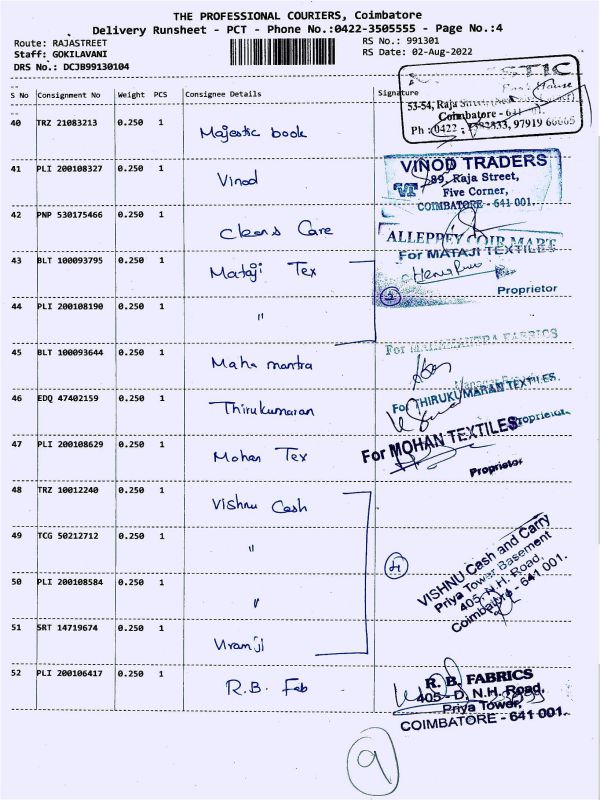 THE PROFESSIONAL COURIERS, Coimbatore
Delivery Runsheet - PCT - Phone No.:0422-3505555 - Page No.:4
Route: RAJASTREET RS No.: 991301
Staff: GOKILAVANI RS Date: 02-Aug-2022
DRS No.: DCJB99130104
S No Consignment No Weight PCS Consignee Details Signature
53-54, Raja Street
Coimbatore - 641
Ph : 0422 97919 66665
40 TRZ 21083213 0.250 1 Majestic book
41 PLI 200108327 0.250 1 Vinod
VINOD TRADERS
VT 89, Raja Street,
Five Corner,
COIMBATORE - 641 001.
42 PNP 530175466 0.250 1 Cleans Care
ALLEPPEY COIR MART
43 BLT 100093795 0.250 1 Mataji Tex
For MATAJI TEXTILES
Proprietor
2
44 PLI 200108190 0.250 1 "
45 BLT 100093644 0.250 1 Maha mantra
For MAHAMANTRA FABRICS
46 EDQ 47402159 0.250 1 Thirukumaran
For THIRUKUMARAN TEXTILES.
Proprietor
47 PLI 200108629 0.250 1 Mohan Tex
For MOHAN TEXTILES
Proprietor
48 TRZ 10012240 0.250 1 Vishnu Cash
49 TCG 50212712 0.250 1 "
4
VISHNU Cash and Carry
Priya Tower Basement
405, N.H. Road,
Coimbatore - 641 001.
50 PLI 200108584 0.250 1 "
51 SRT 14719674 0.250 1 Viramji
52 PLI 200106417 0.250 1 R.B. Fab
R. B. FABRICS
405 - D, N.H. Road,
Priya Tower,
COIMBATORE - 641 001.
9